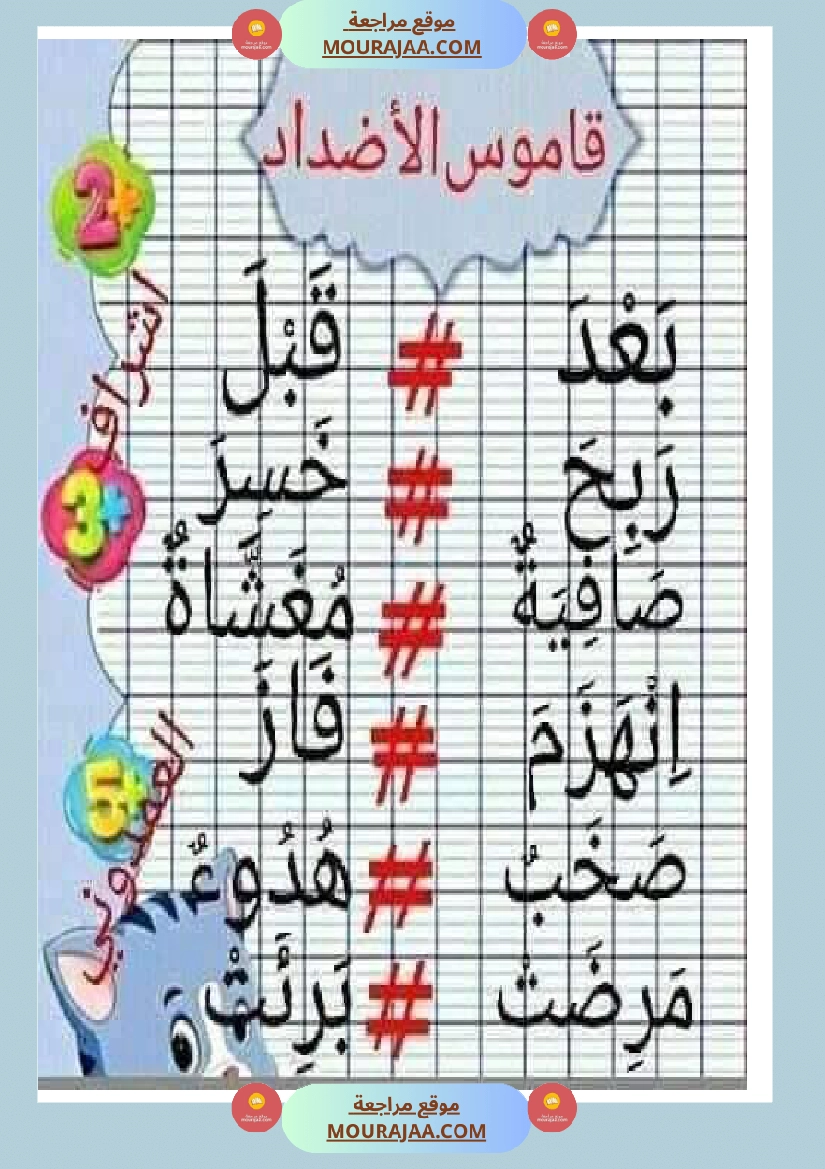 موقع مراجعة
MOURAJAA.COM
قاموس الأضداد
بَعْدَ # قَبْلَ
رَبِحَ # خَسِرَ
صَافِيَةٌ # مُغَشَّاةٌ
اِنْهَزَمَ # فَازَ
صَخَبٌ # هُدُوءٌ
مَرِضَتْ # بَرِئَتْ
2
3
5
اشراف
العمدوني
موقع مراجعة
MOURAJAA.COM